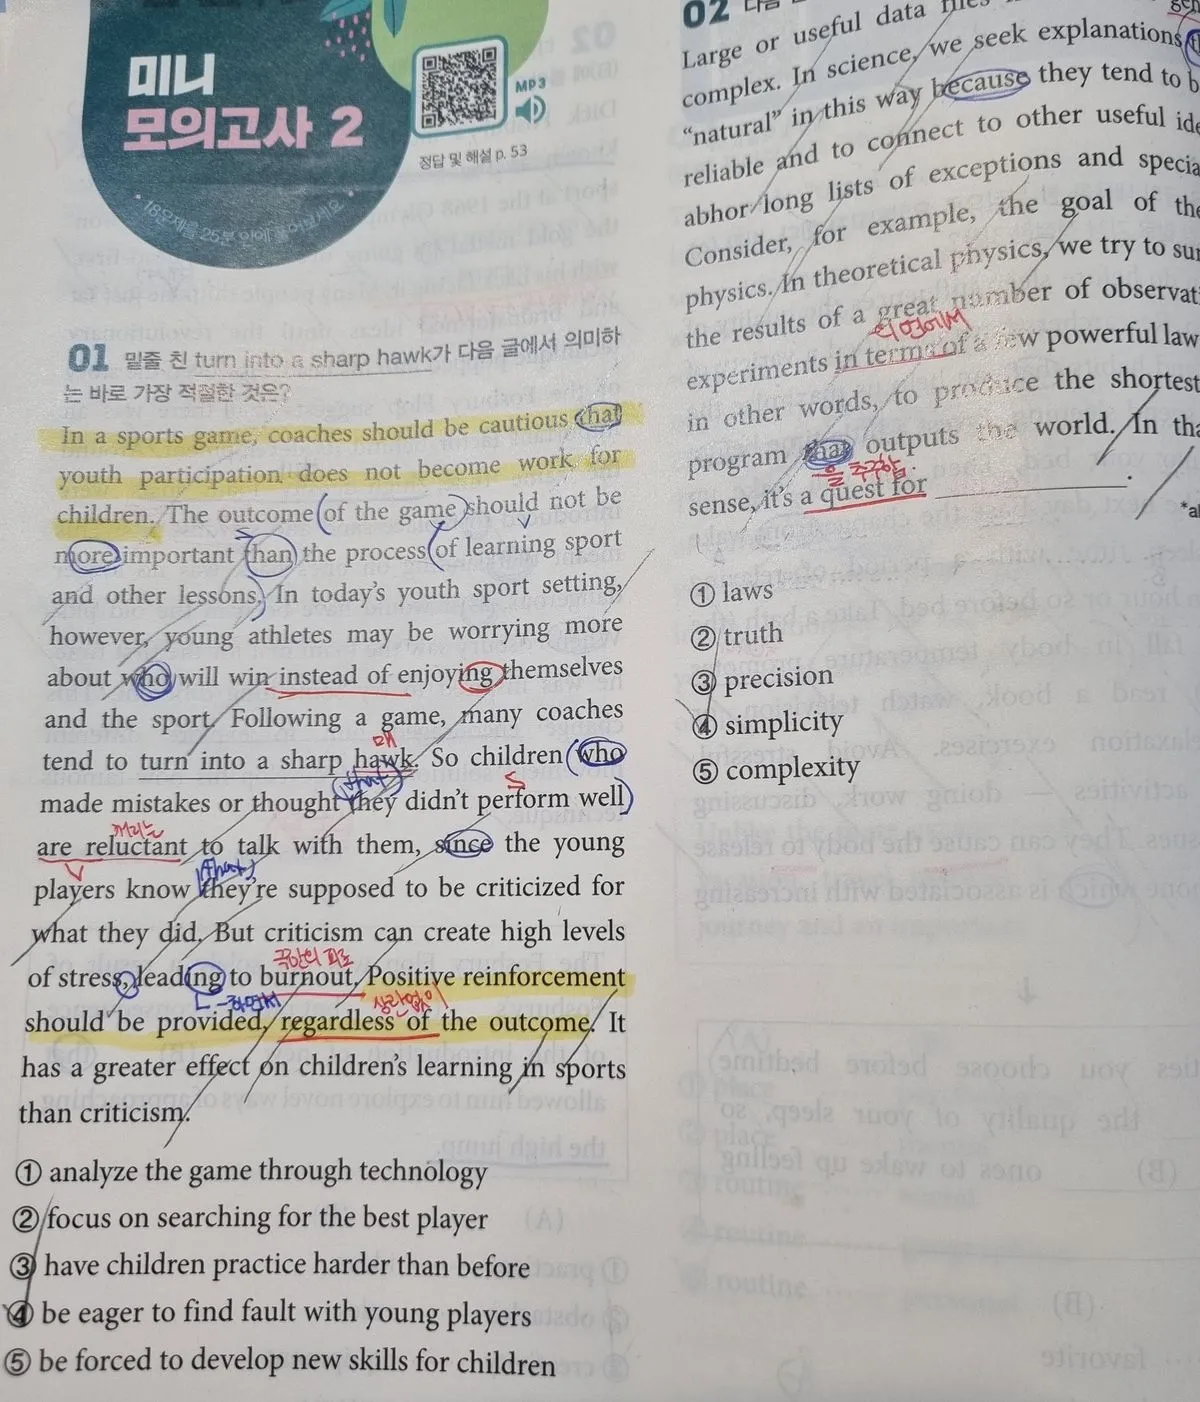 미니
모의고사 2
MP3
정답 및 해설 p. 53
• 18문제를 25분 안에 풀어보세요 •
01 밑줄 친 turn into a sharp hawk가 다음 글에서 의미하
는 바로 가장 적절한 것은?
In a sports game, coaches should be cautious that
youth participation does not become work for
children. The outcome (of the game) should not be
more important than the process (of learning sport
and other lessons.) In today's youth sport setting,
however, young athletes may be worrying more
about who will win instead of enjoying themselves
and the sport. Following a game, many coaches
매
tend to turn into a sharp hawk. So children (who
(that) s
made mistakes or thought they didn't perform well)
꺼리는
are reluctant to talk with them, since the young
(that)
players know they're supposed to be criticized for
what they did. But criticism can create high levels
극한의 피로
of stress, leading to burnout. Positive reinforcement
-하면서 상관없이
should be provided, regardless of the outcome. It
has a greater effect on children's learning in sports
than criticism.
① analyze the game through technology
② focus on searching for the best player
③ have children practice harder than before
④ be eager to find fault with young players
⑤ be forced to develop new skills for children
02 다음
Large or useful data
complex. In science, we seek explanations
"natural" in this way because they tend to b
reliable and to connect to other useful ide
abhor long lists of exceptions and specia
Consider, for example, the goal of the
physics. In theoretical physics, we try to sum
the results of a great number of observat
의 면에서
experiments in terms of a few powerful law
in other words, to produce the shortest
program that outputs the world. In tha
을 추구함
sense, it's a quest for ____.
① laws
② truth
③ precision
④ simplicity
⑤ complexity